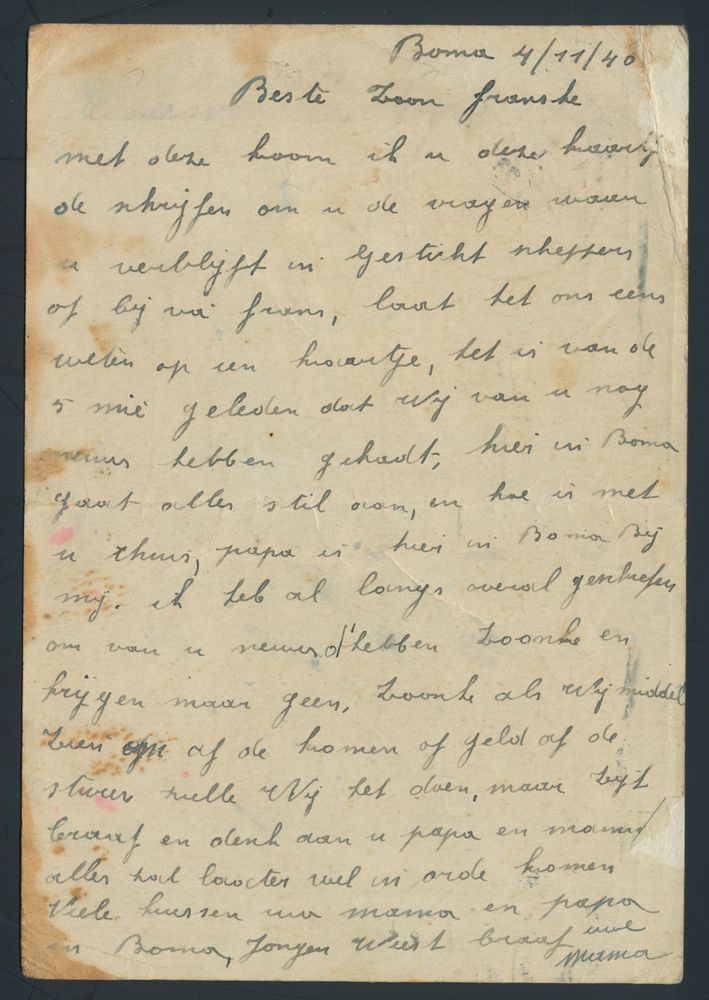 Boma 4/11/40
Beste Zoon franske
met deze koom ik u deze kaartj
de schrijfen om u de vragen waar
u verblijft in Gesticht scheppers
of bij va frans, laat het ons eens
weten op een kaartje, het is van de
5 mië geleden dat Wij van u nog
neuws hebben gehadt, hier in Boma
gaat alles stil aan, en hoe is met
u thuis, papa is hier in Boma Bij
mij. ik heb al langs overal geschrefen
om van u neuws d'hebben Zoonke en
krijgen maar geen, Zoonke als Wij middel
Zien om af de komen of geld af de
stuur zulle Wij het doen, maar Zijt
braaf en denk aan u papa en mama
alles zal laater wel in orde komen
Viele kussen uw mama en papa
in Boma, Jongen Weest braaf uwe
mama